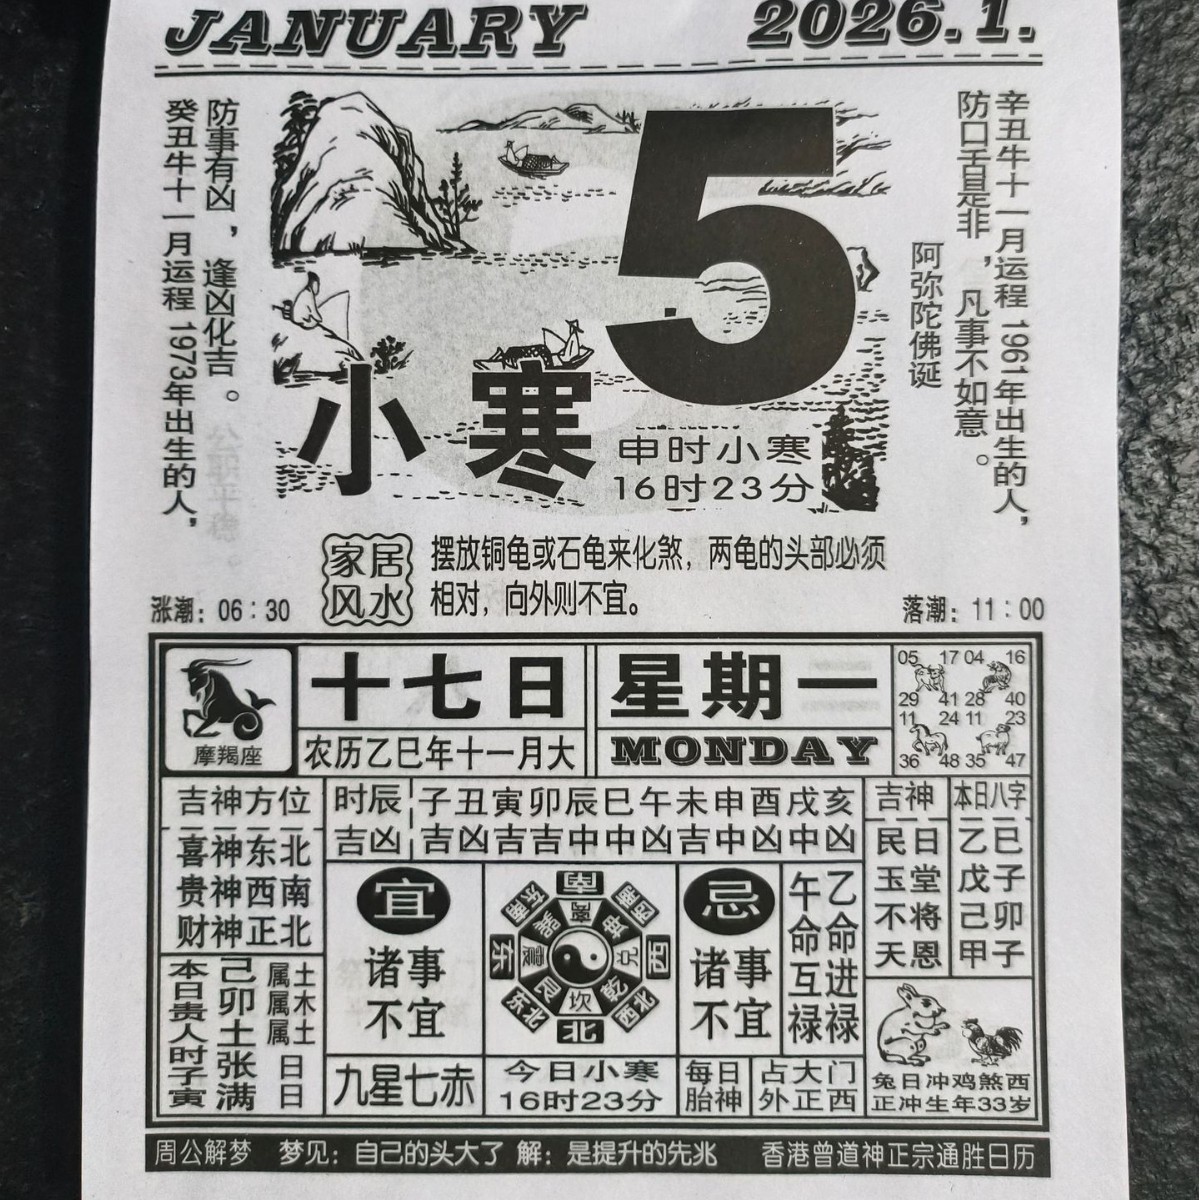 JANUARY 2026.1.
辛丑牛十一月运程 1961年出生的人，
防口舌是非，凡事不如意。
阿弥陀佛诞
5
小寒
申时小寒
16时23分
防事有凶，逢凶化吉。
癸丑牛十一月运程 1973年出生的人，
家居风水
摆放铜龟或石龟来化煞，两龟的头部必须
相对，向外则不宜。
涨潮：06：30
落潮：11：00
摩羯座
十七日
农历乙巳年十一月大
星期一
MONDAY
05 17 04 16
29 41 28 40
11 24 11 23
36 48 35 47
吉神方位
喜神东北
贵神西南
财神正北
时辰 子丑寅卯辰巳午未申酉戌亥
吉凶 吉凶吉吉中中凶吉中凶中凶
吉神
民日
玉堂
不将
天恩
本日八字
乙巳
戊子
己卯
甲子
宜
诸事
不宜
南
西南
西
西北
北
东北
东
东南
离
坤
兑
乾
坎
艮
震
巽
忌
诸事
不宜
乙命进禄
午命互禄
本日贵人时子寅
己卯土张满
属土日
属木
属土日
九星七赤
今日小寒
16时23分
每日
胎神
占大门
外正西
兔日冲鸡煞西
正冲生年33岁
周公解梦 梦见：自己的头大了 解：是提升的先兆 香港曾道神正宗通胜日历